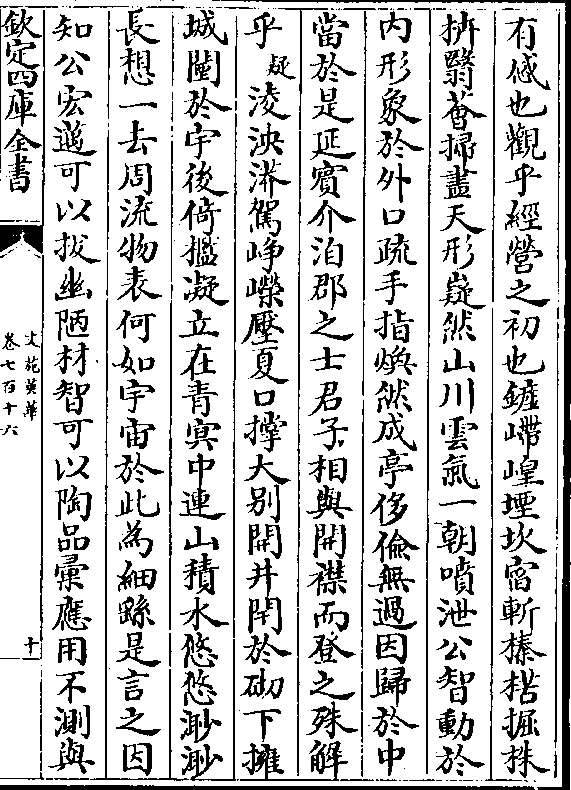 有感也觀乎經營之初也鏟嵽嵲堙坎窞斬榛楛掘株
擠翳薈掃盡天形嶷然山川雲氣一朝噴泄公智動於
内形象於外口疏手指煥然成亭侈儉無過因歸於中
當於是延賓介洎郡之士君子相與開襟而登之殊解
乎疑淩泱漭駕崢嶸壓夏口擰大别開井閈於砌下擁
城闉於宇後倚檻凝立在青冥中連山積水悠悠渺渺
長想一去周流物表何如宇宙於此為細繇是言之因
知公宏邁可以拔幽陋材智可以陶品彙應用不測與
欽定四庫全書
文苑英華
卷七百十六
十